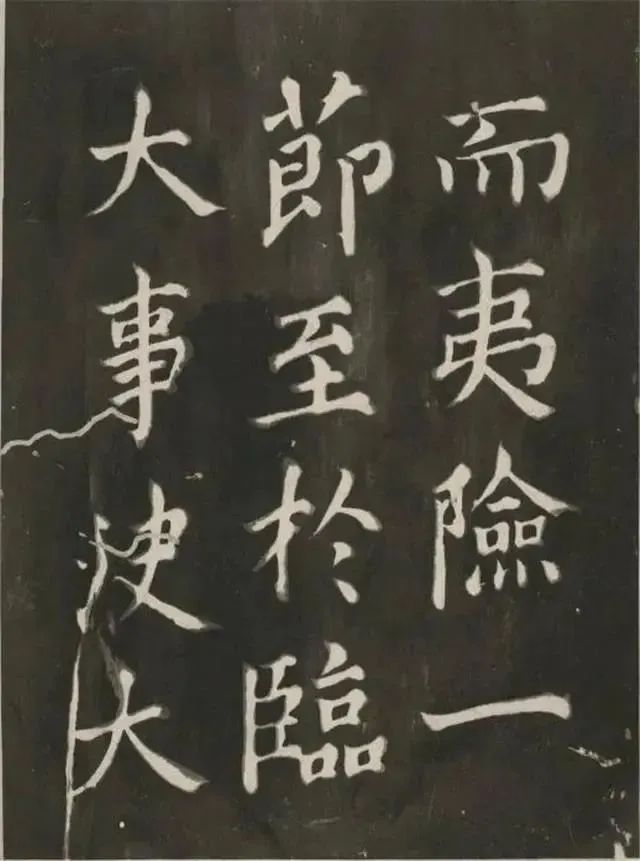 而夷險一
節至於臨
大事決大